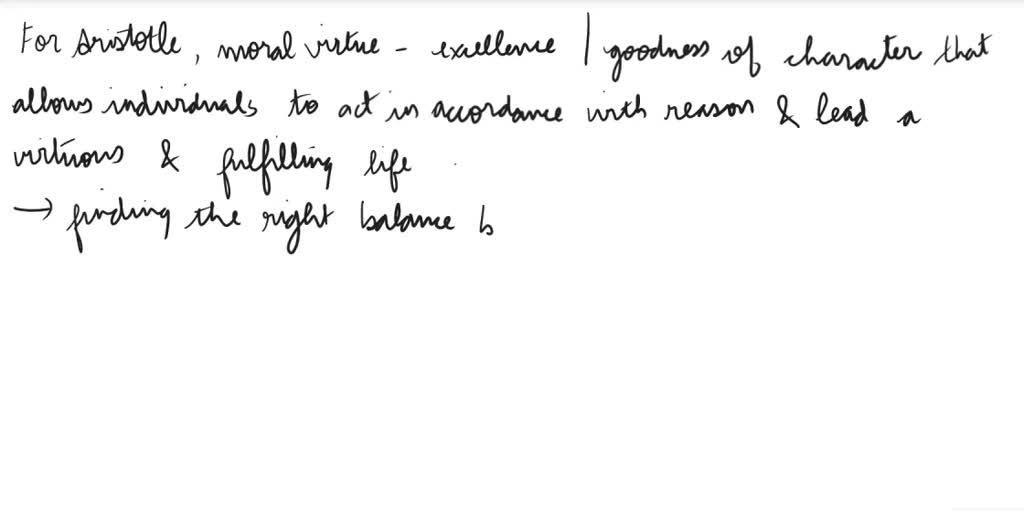 For Aristotle, moral virtue - excellence / goodness of character that
allows individuals to act in accordance with reason & lead a
virtuous & fulfilling life
→ finding the right balance b